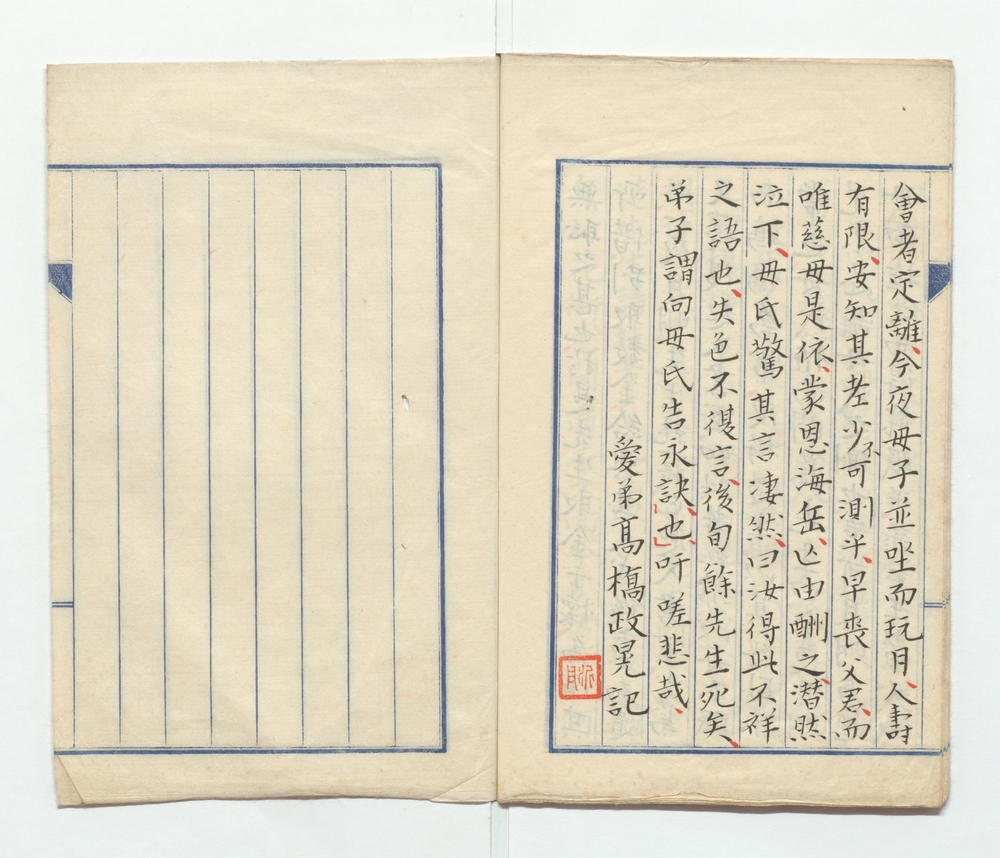 會者定離、今夜母子並坐而玩月、人壽
有限、安知其老少不可測乎、早喪父君、而
唯慈母是依、蒙恩海岳、亡由酬之、潜然
泣下、母氏驚其言凄然、曰汝得此不祥
之語也、失色不復言、後旬餘先生死矣、
弟子謂向母氏告永訣、也、吁嗟悲哉、
愛弟髙橋政晃記